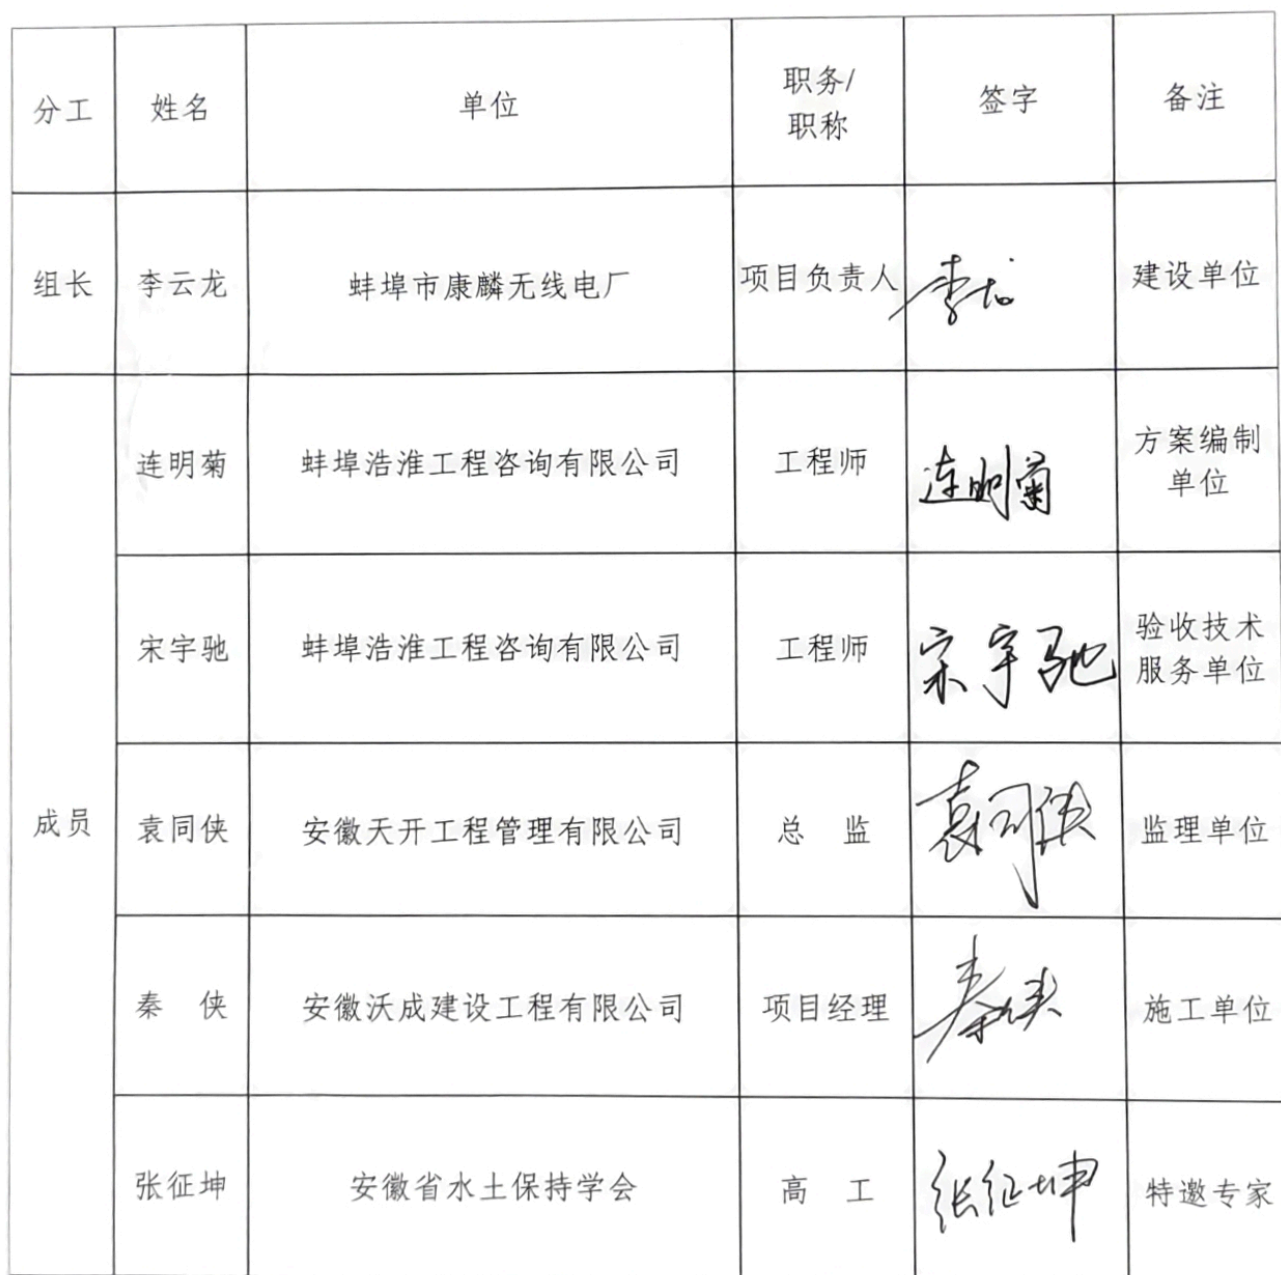 分工 姓名 单位 职务/职称 签字 备注
组长 李云龙 蚌埠市康麟无线电厂 项目负责人 李龙 建设单位
成员
连明菊 蚌埠浩淮工程咨询有限公司 工程师 连明菊 方案编制单位
宋宇驰 蚌埠浩淮工程咨询有限公司 工程师 宋宇驰 验收技术服务单位
袁同侠 安徽天开工程管理有限公司 总 监 袁同侠 监理单位
秦 侠 安徽沃成建设工程有限公司 项目经理 秦侠 施工单位
张征坤 安徽省水土保持学会 高 工 张征坤 特邀专家